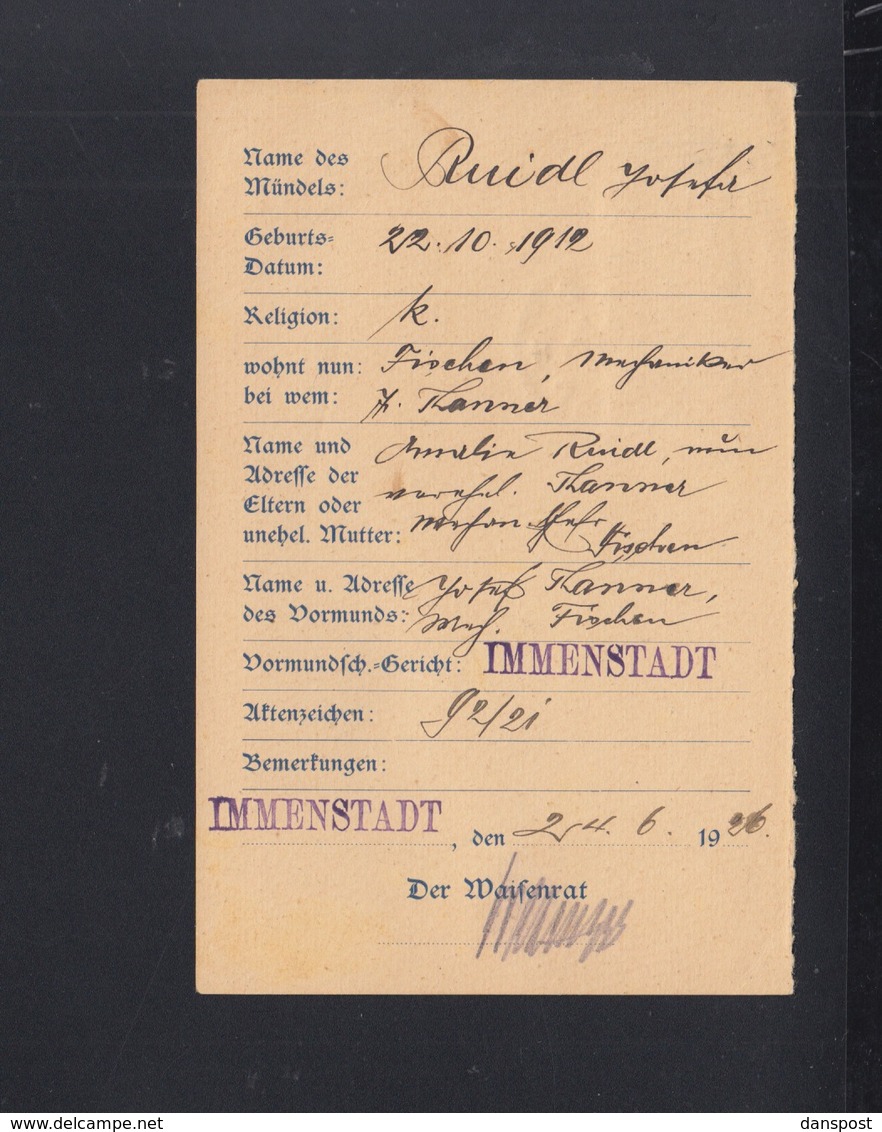 Name des
Mündels: Ruidl Josefa
Geburts=
Datum: 22. 10. 1912
Religion: k.
wohnt nun: Fischen, Mechaniker
bei wem: J. Tanner
Name und Amalie Ruidl, nun
Adresse der verehel. Tanner
Eltern oder
unehel. Mutter: Fischen
Name u. Adresse Josef Tanner,
des Vormunds: Mech. Fischen
Vormundsch.=Gericht: IMMENSTADT
Aktenzeichen: 92/21
Bemerkungen:
IMMENSTADT, den 24. 6. 1926.
Der Waisenrat
www.delcampe.net
danspost